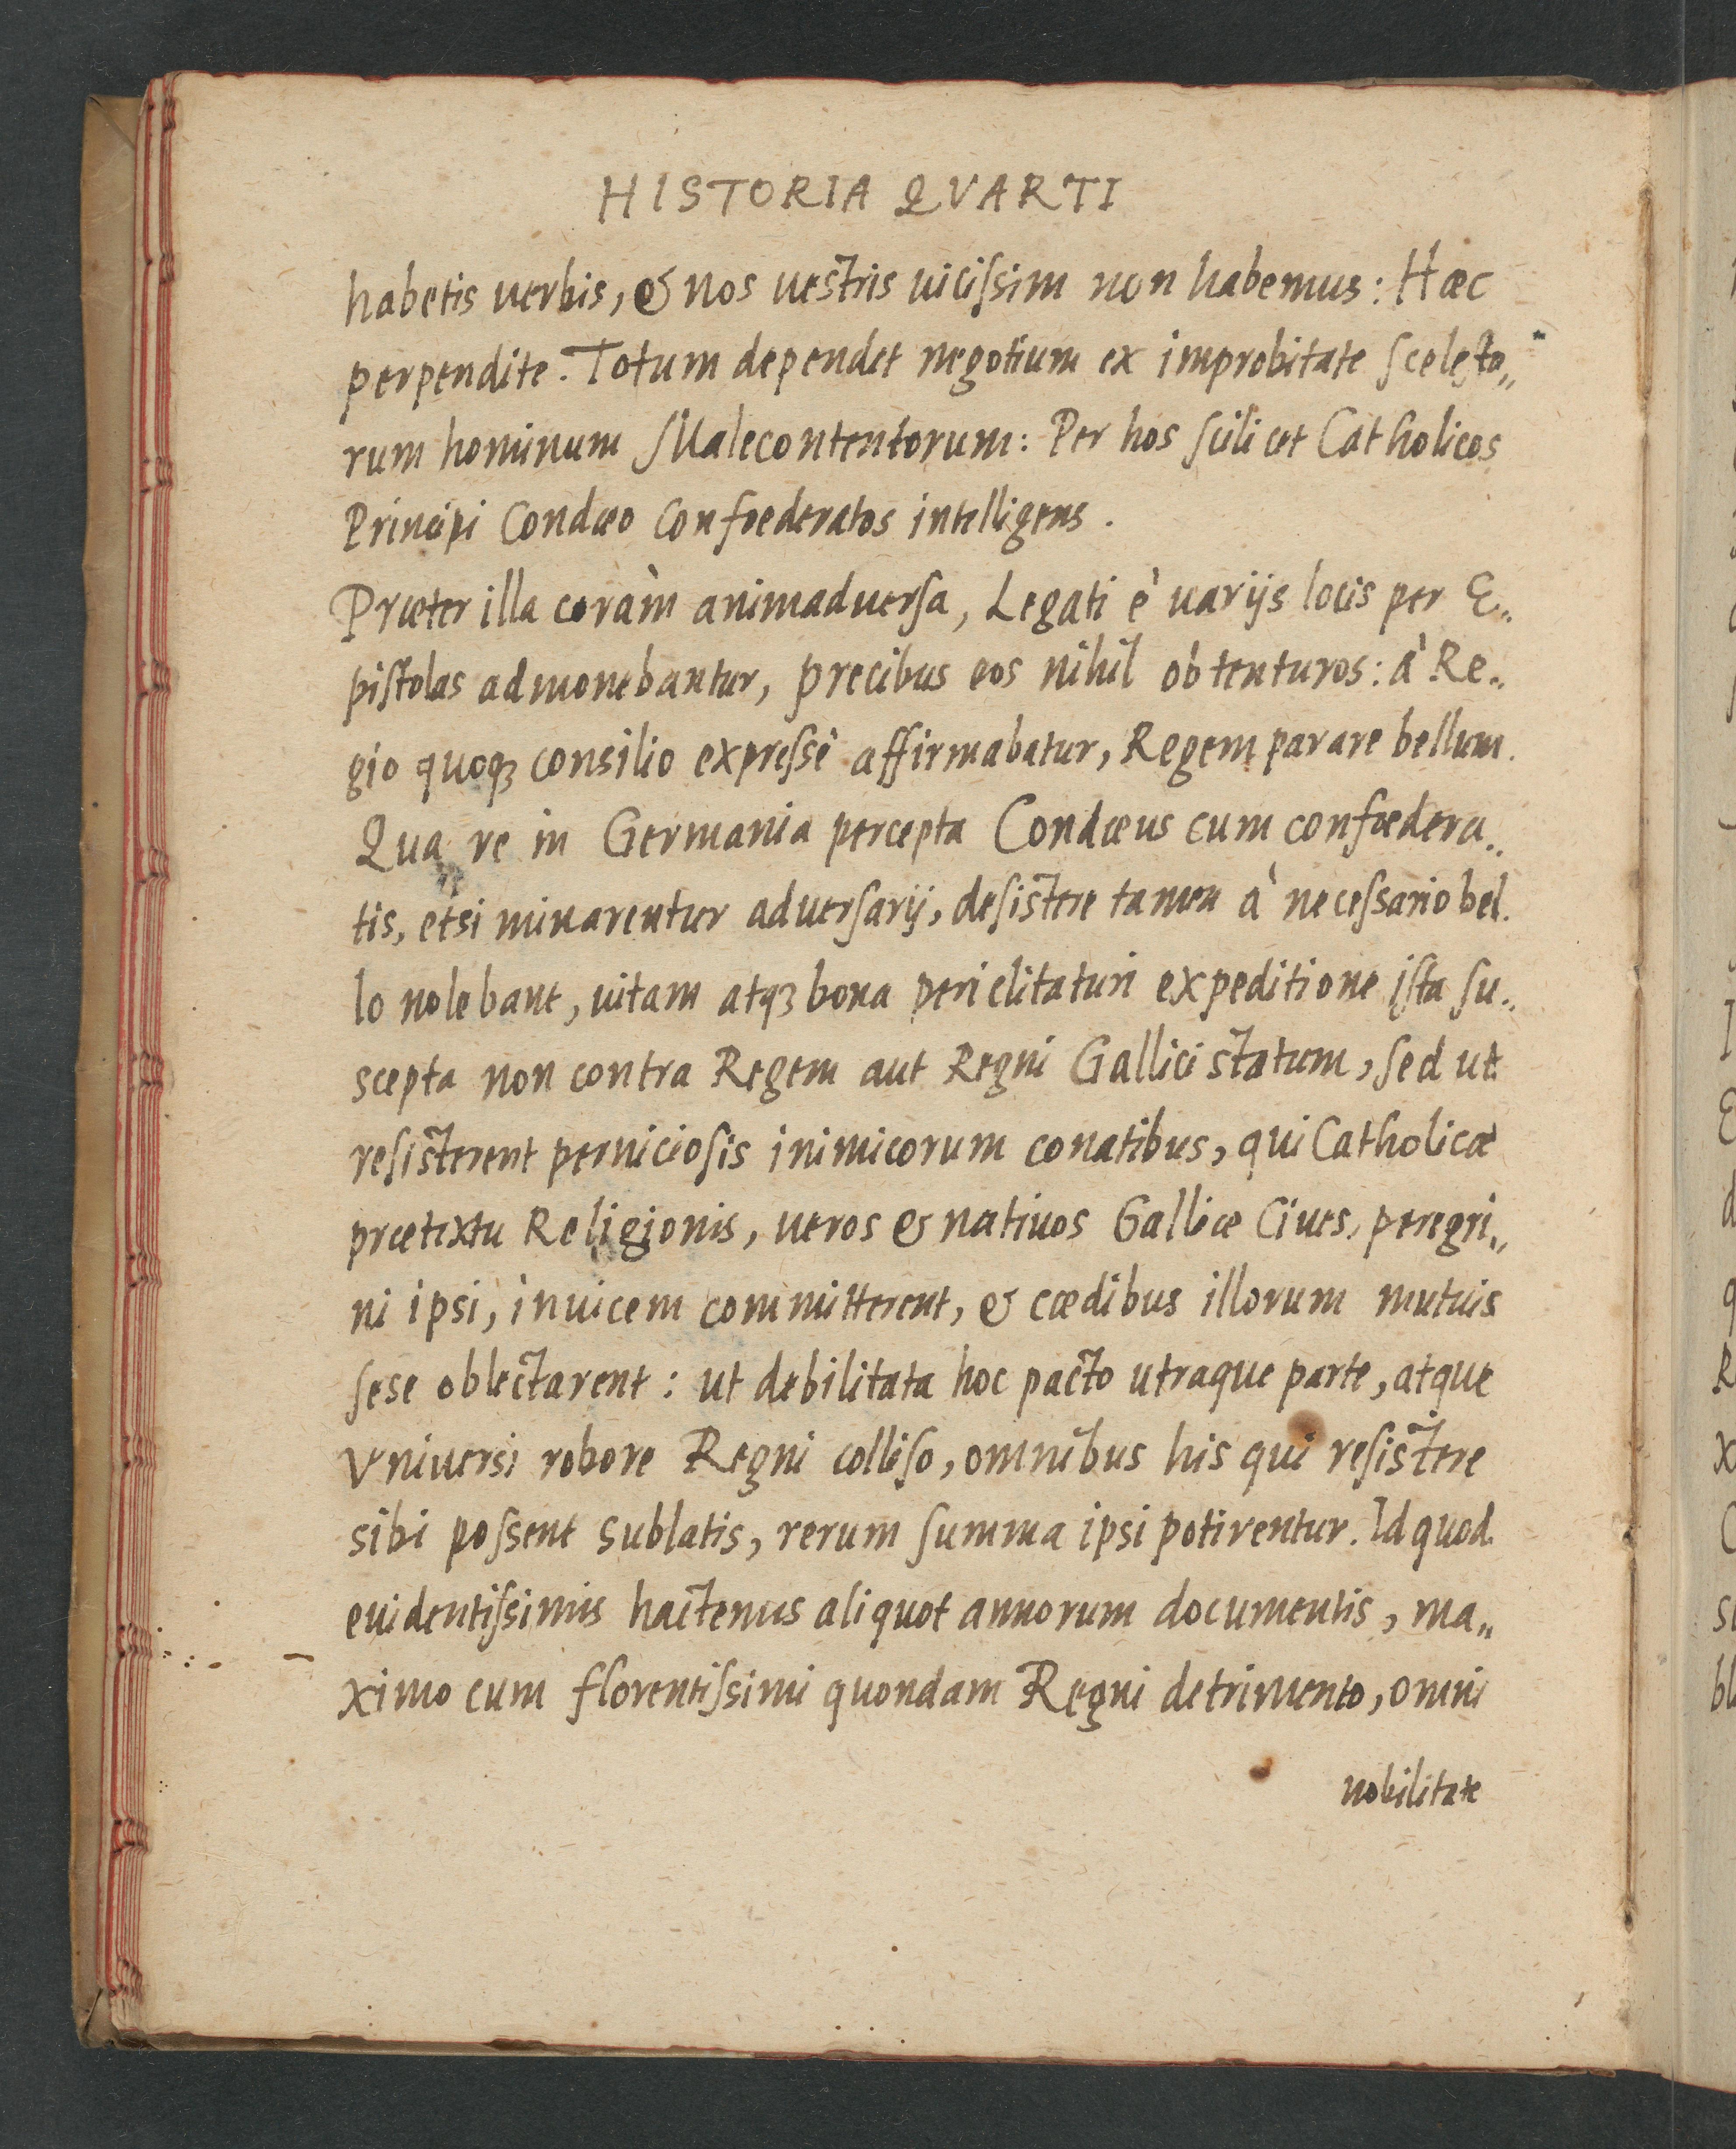 HISTORIA QVARTI
habetis verbis, & nos uestris uiciſsim non habemus: Hæc
perpendite. Totum dependet negotium ex improbitate ſceleſto„
rum hominum Malecontentorum: Per hos ſcilicet Catholicos
Principi Condæo Confœderatos intelligens.
Præter illa coràm animaduerſa, Legati è uarijs locis per E„
piſtolas admonebantur, precibus eos nihil obtenturos: à Re„
gio quoqꝫ consilio expreſsè affirmabatur, Regem parare bellum.
Qua re in Germania percepta Condæus cum confœdera„
tis, etsi minarentur aduerſarij, deſistere tamen à neceſsario bel.
lo nolebant, uitam atqꝫ bona periclitaturi expeditione iſta ſu„
scepta non contra Regem aut Regni Gallici statum, ſed ut
reſisterent pernicioſis inimicorum conatibus, qui Catholicæ
prætextu Religionis, ueros & natiuos Galliæ Ciues, peregri„
ni ipsi, inuicem committerent, & cædibus illorum mutuis
ſese oblectarent: ut debilitata hoc pacto utraque parte, atque
Vniuersi robore Regni colliſo, omnibus his qui reſistere
sibi poſsent sublatis, rerum ſumma ipsi potirentur. Id quod
euidentiſsimis hactenus aliquot annorum documentis, ma„
ximo cum florentiſsimi quondam Regni detrimento, omni
nobilitate